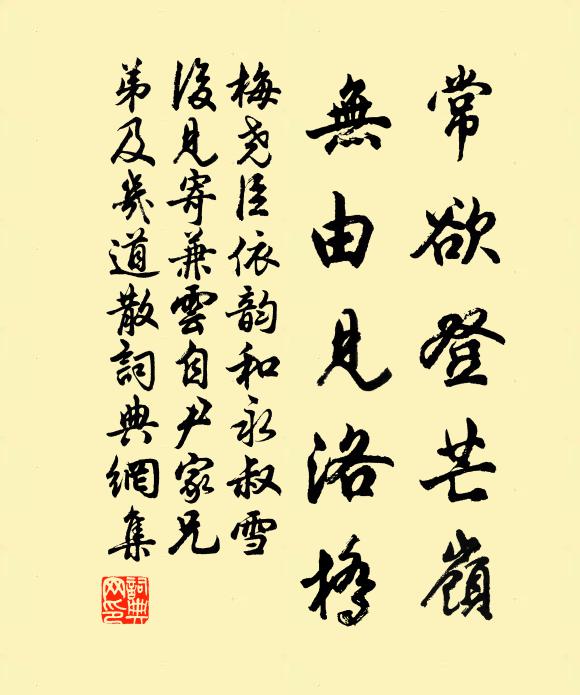 常欲登芒嶺
無由見洛橋
梅尧臣依韵和永叔雪
後見寄兼雲自尹家兄
弟及幾道散詞典網集
詞典網印